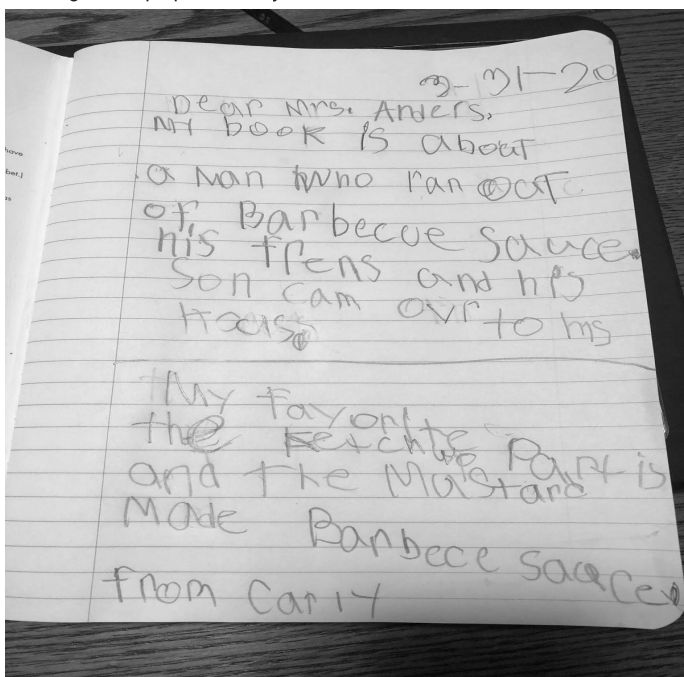 3-31-20
Dear Mrs. Anders,
My book is about
a Man Who ran out
of Barbecue sauce.
his frens and his
Son cam ovr to his
House
My favorite Part is
the ketchup
and the Mustard
Made Barbece saucce.
from Carly
have